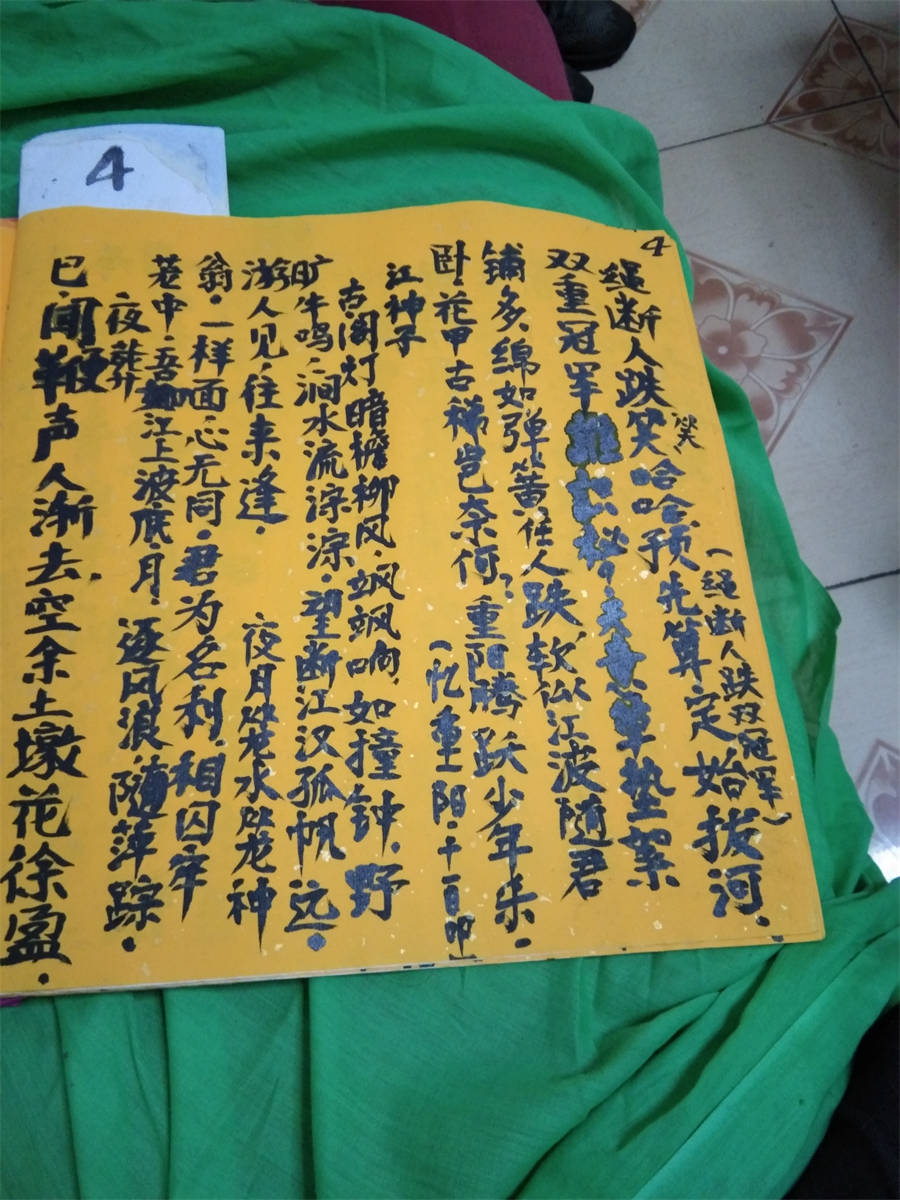 4
4
(绳断人跌双冠军)
绳断人跌笑笑哈哈预先算定始拔河.
双重冠军 垫絮
铺多.绵如弹簧任人跌软似江波随君
卧.花甲古稀岂奈何?重阳腾跃少年乐.
(忆重阳.
江神子
古阁灯暗檐柳风.飒飒响.如撞钟.野
旷牛鸣.涧水流淙淙.望断江汉孤帆远.
游人见.往来逢. 夜月处龙水处龙神
翁.一样面.心无同.君为名利.相囚牢
苍中.吾 江上波底月.逐风浪.随萍踪.
夜葬
已闻鞭声人渐去.空余土墩花徐盈.